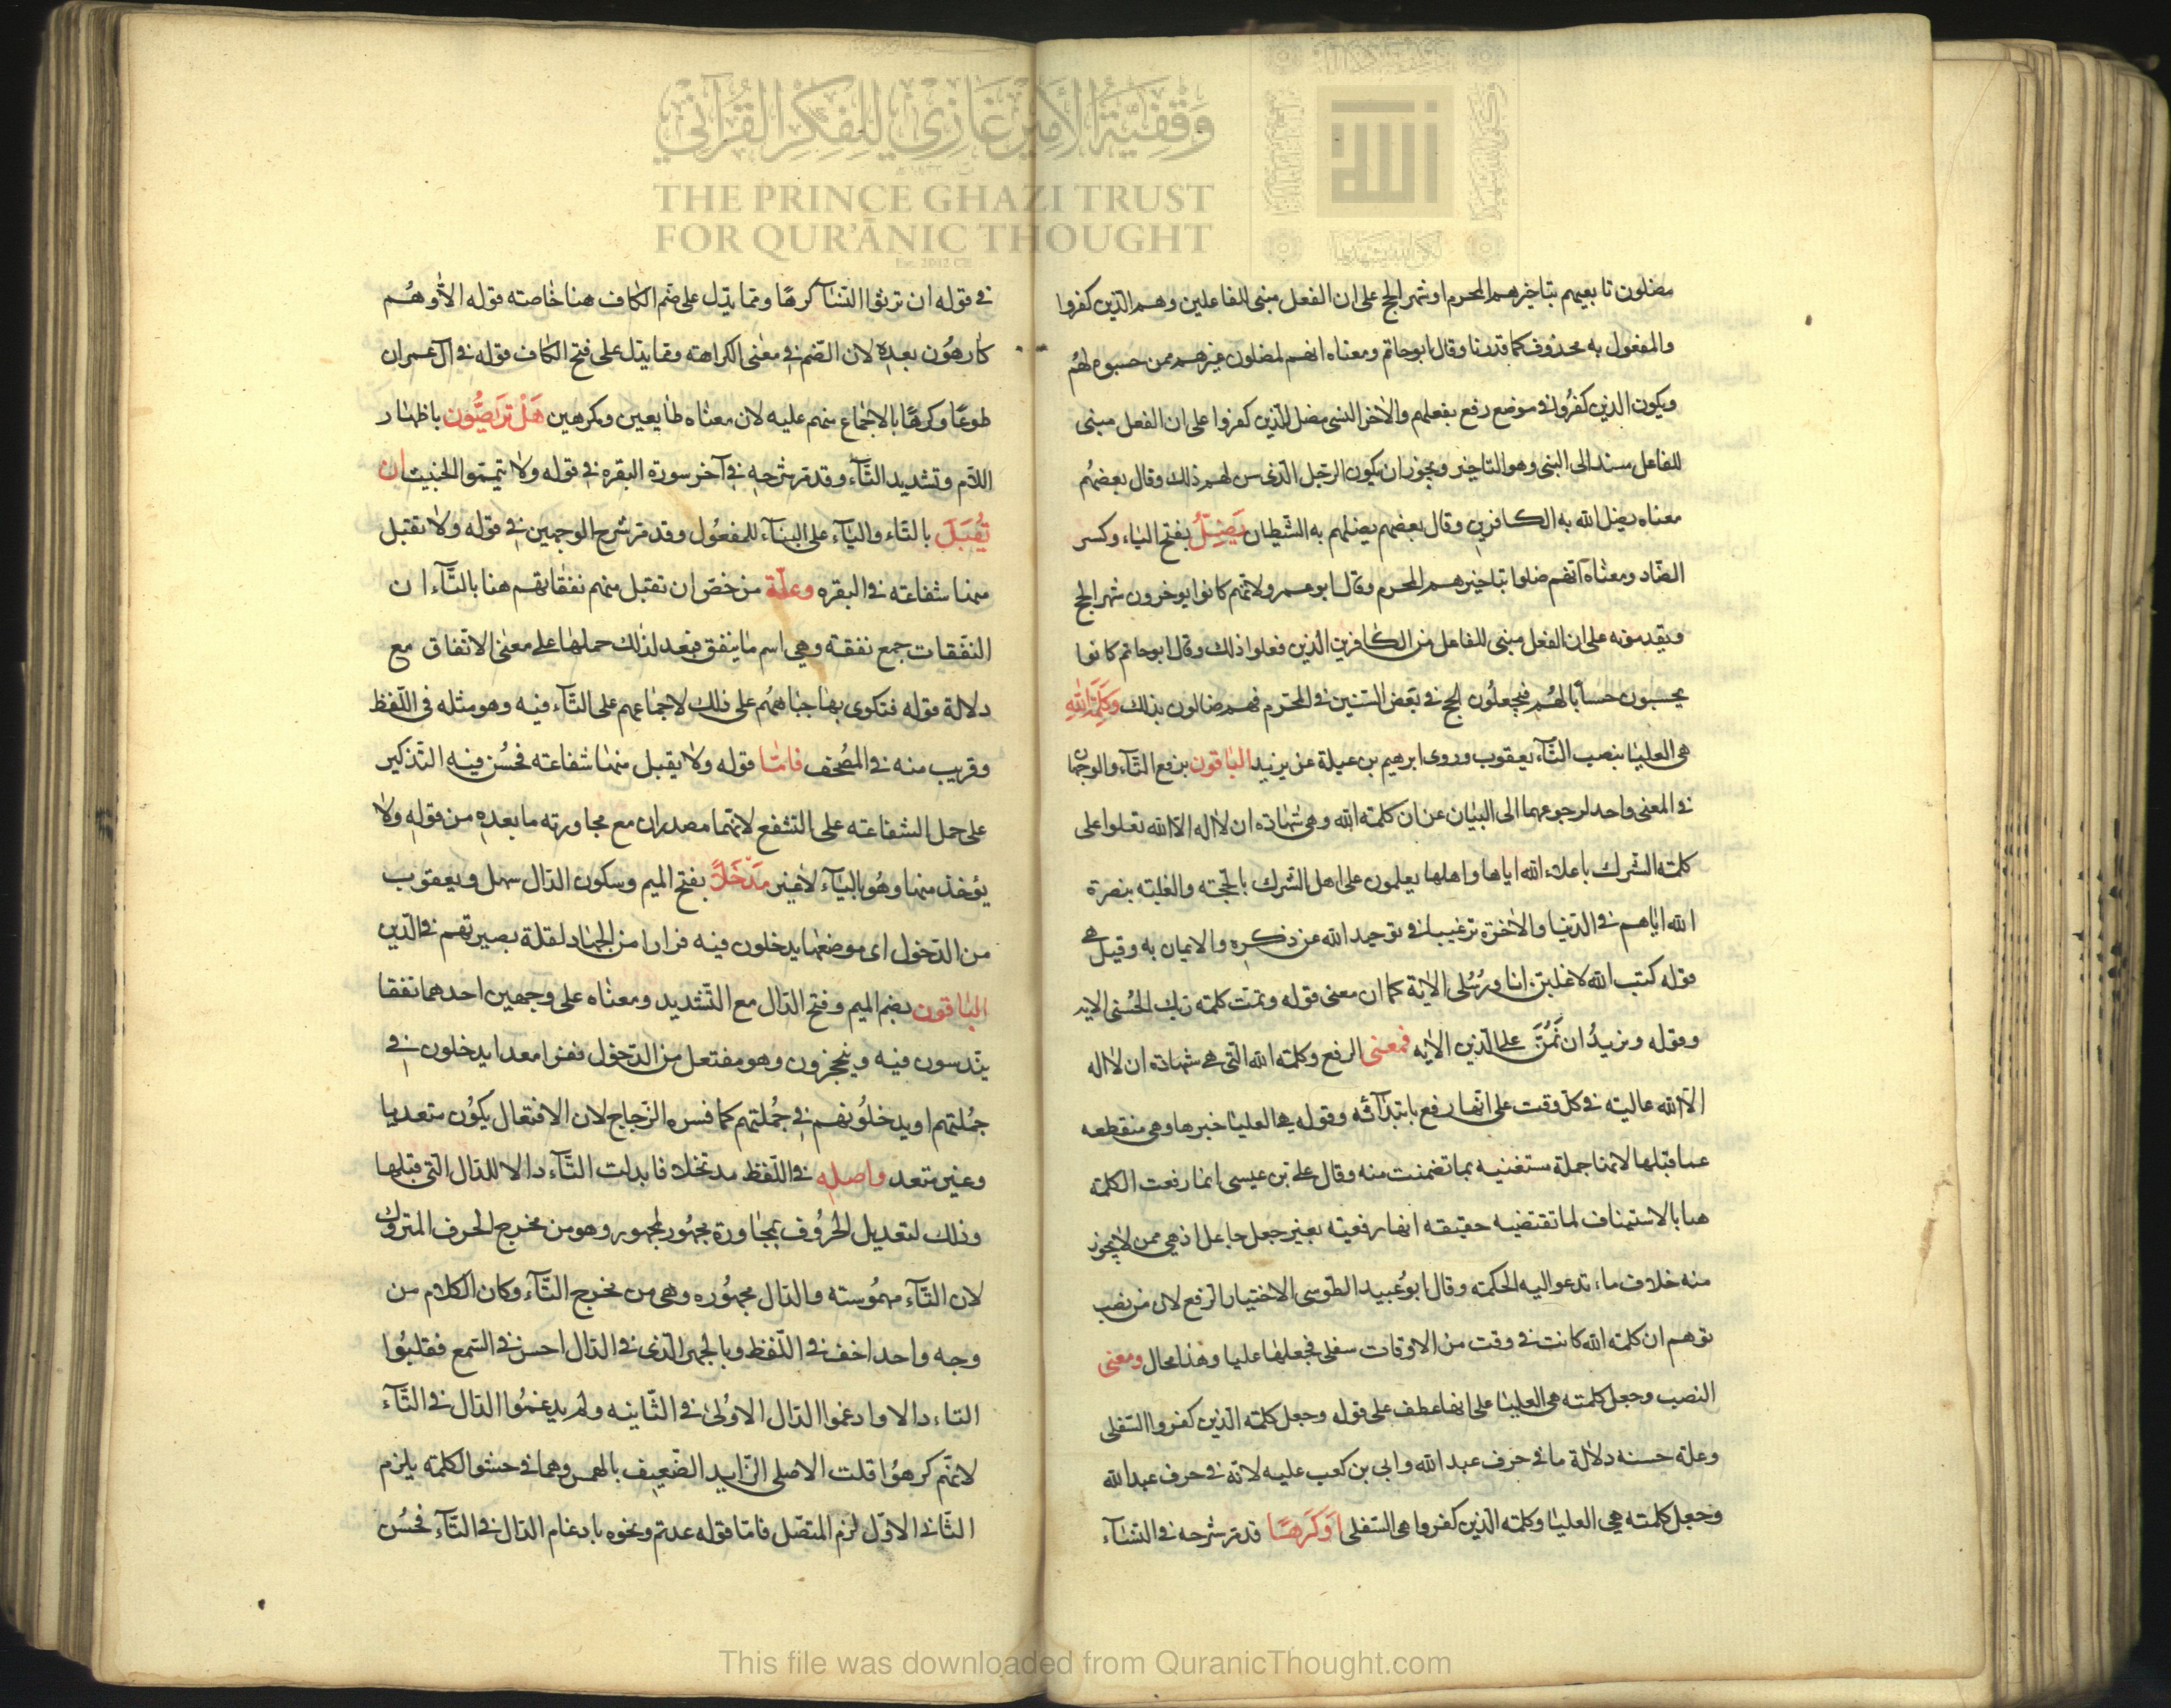 وَقْفِيَّةُ الأَمِيْرِ غَازِي لِلْفِكْرِ القُرْآنِيّ
THE PRINCE GHAZI TRUST
FOR QUR'ĀNIC THOUGHT
Est. 2012 CE
مضلّون تابعيهم بتاخيرهم المحرم او شهر الحج على ان الفعل مبنى للفاعلين وهم الذين كفروا
والمفعول به محذوف كما قدرنا وقال ابو حاتم ومعناه انهم لمضلون غيرهم ممن حسبوه لهم
ويكون الذين كفروا في موضع رفع بفعلهم والاخر النسى مضل للذين كفروا على ان الفعل مبنى
للفاعل مسند الى النبى وهو التاخير ويجوز ان يكون الرجل الذى سن لهم ذلك وقال بعضهم
معناه يضل الله به الكافرين وقال بعضهم يضلهم به الشيطان يَضِلُّ بفتح الياء وكسر
الضّاد ومعناه انهم ضلوا بتاخيرهم المحرم وقال ابو عمرو لانهم كانوا يوخرون شهر الحج
ويقدمونه على ان الفعل مبنى للفاعل من الكافرين الذين فعلوا ذلك وقال ابو حاتم كانوا
يحسبون حسابا لهم فيجعلون الحج في بعض السنين في المحرم فهم ضالون بذلك وَكَلِمَةُ اللهِ
هي العليا بنصب التّاء يعقوب وروى ابرهيم بن عيلة عن يزيد الباقون برفع التّاء والوجهان
في المعنى واحد لرجوعهما الى البيان عن ان كلمة الله وهي شهادة ان لا اله الا الله تعلوا على
كلمة الشّرك باعلاء الله اياها واهلها يعلمون على اهل الشرك بالحجة والغلبة بنصرة
الله اياهم في الدّنيا والاخرة ترغيبا في توحيد الله عن ذكره والايمان به وقيل هي
قوله كتب الله لاغلبن انا ورُسُلى الاية كما ان معنى قوله وتمّت كلمة ربك الحُسنى الاية
وقوله ونريدُ ان نَّمُنَّ على الّذين الاية فمعنى الرفع وكلمة الله التى هي شهادة ان لا اله
الّا الله عالية في كل وقت على انّها رفع بابتدائه وقوله هي العليا خبرها وهي منقطعة
عما قبلها لانها جملة مستغنية بما تضمنت منه وقال على بن عيسى انما رفعت الكلمة
هنا بالاستيناف لما تقتضيه حقيقة انها رفعية بغير جعل جاعل اذ هي ممن لا يجوز
منه خلاف ما تدعوا اليه الحكمة وقال ابو عُبيد الطّوسى الاختيار الرفع لان من نصب
توهم ان كلمة الله كانت في وقت من الاوقات سفلى فجعلها عليا وهذا محال ومعنى
النصب وجعل كلمته هي العليا على انها عطف على قوله وجعل كلمة الذين كفروا السّفلى
وعلة حسنه دلالة ما في حرف عبد الله وابى بن كعب عليه لانه في حرف عبد الله
وجعل كلمته هي العليا وكلمة الّذين كفروا هي السّفلى اَوْ كَرْهًا قد مرّ شرحه في النساء
في قوله ان ترثوا النّسآ كرهًا ومما يدّل على ضم الكاف هنا خاصته قوله الا وهُم
كارهُون بعده لان الضّم في معنى الكراهة ومما يدل على فتح الكاف قوله في آل عمران
طوعًا وكرهًا بالاجماع منهم عليه لان معناه طايعين ومكرهين هَلْ تَرَبَّصُون باظهار
اللام وتشديد التّآء وقد مر شرحه في آخر سورة البقره في قوله ولا تيمّموا الخبيث ان
تُقبَلَ بالتّاء واليآء على البنآء للمفعُول وقد مر شرح الوجهين في قوله ولا تقبل
منها شفاعة في البقره وعلّة من خصّ ان تقبل منهم نفقاتهم هنا بالتّآء ان
النّفقات جمع نفقة وهي اسم ما ينفق فبعد لذلك حملها على معنى الانفاق مع
دلالة قوله فتكوى بها جباههُم على ذلك لاجماعهم على التّآء فيه وهو مثله في اللّفظ
وقريب منه في المُصحف فامّا قوله ولا يقبل منها شفاعة فحُسن فيه التّذكير
على حمل الشفاعة على التشفع لانهما مصدران مع مجاورته ما بعده من قوله ولا
يؤخذ منها وهُو باليآء لا غير مَدْخَلًا بفتح الميم وسكون الدّال سهل ويعقوب
من الدّخول اى موضعًا يدخلون فيه فرارا من الجهاد لقلة بصيرتهم في الدّين
الباقون بضم الميم وفتح الدّال مع التّشديد ومعناه على وجهين احدهما نفقا
يندسون فيه وينجحرون وهو مفتعل من الدّخول نفرا معدا يدخلون في
جُملتهم او يدخلُونهم في جُملتهم كما فسره الزّجاج لان الافتعال يكُون متعديا
وغير متعد واصله في اللّفظ مدتخلا فابدلت التّآء دالا للدّال التى قبلها
وذلك لتعديل الحرُوف بمجاورة مجهُور لمجهور وهو من مخرج الحرف المتروك
لان التّآء مهمُوسة والدّال مجهُوره وهي من مخرج التّآء وكان الكلام من
وجه واحد اخف في اللّفظ وبالجهر الّذى في الدّال احسن في السّمع فقلبُوا
التاء دالا وادغموا الدّال الاوُلى في الثّانية ولم يدغمُوا الدّال في التّآء
لانهم كرهُوا قلت الاصلى الزّايد الضّعيف بالهمس وهما في حشو الكلمة يلزم
الثّانى الاوّل لزم المتصّل فامّا قوله عدتم ونحوه بادغام الدّال في التّآء فحسُن
This file was downloaded from QuranicThought.com